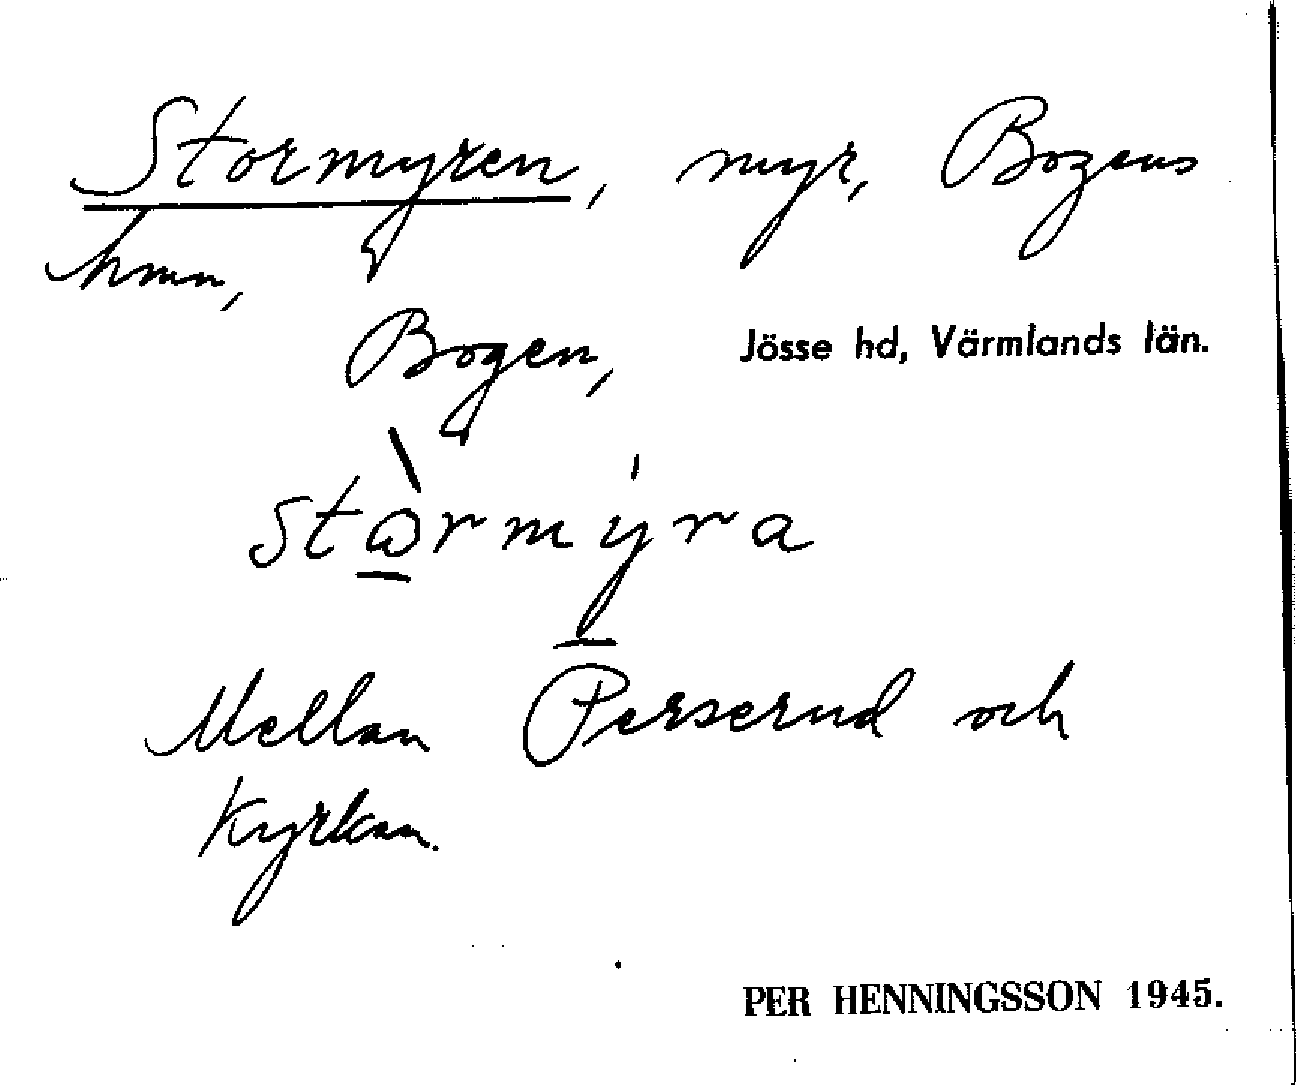 Stormyren, myr, Bogens
hmn,
Bogen, Jösse hd, Värmlands län.
stɷ̀rmýra
Mellan Perserud och
Kyrkan.
PER HENNINGSSON 1945.